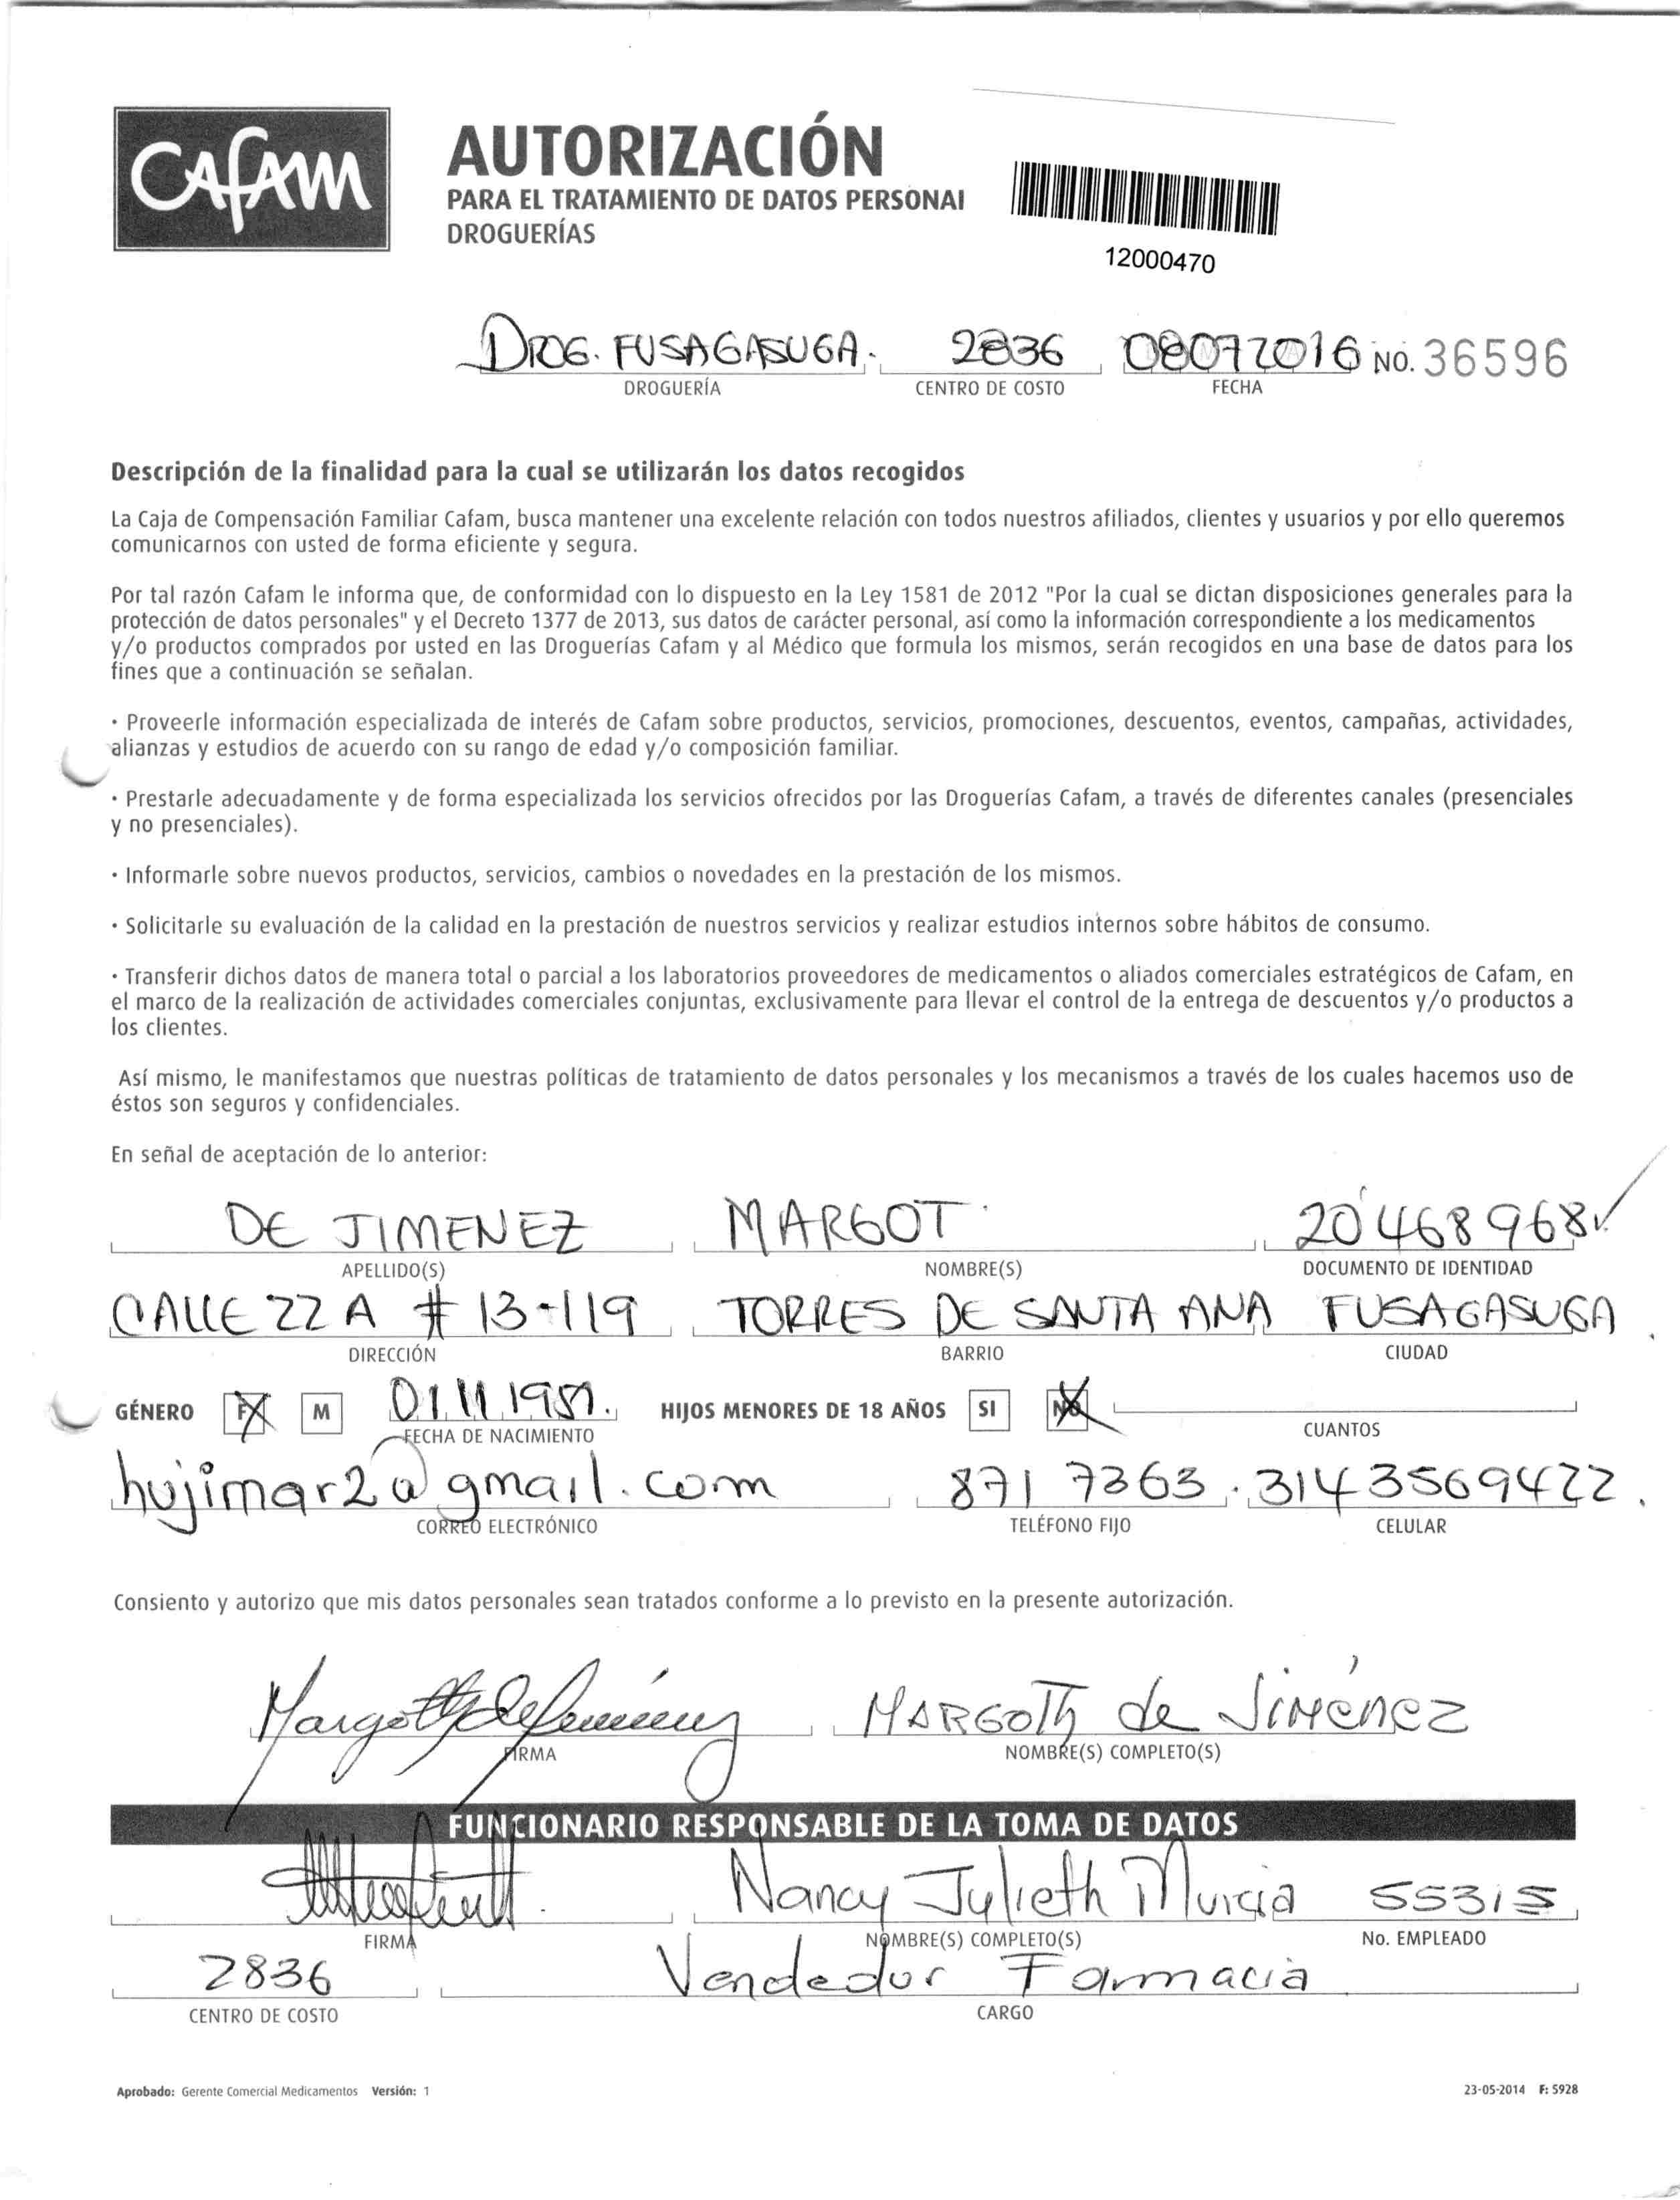 Cafam
AUTORIZACIÓN
PARA EL TRATAMIENTO DE DATOS PERSONAL
DROGUERÍAS
12000470
DROG. FUSAGASUGA. 2836 08072016 NO. 36596
DROGUERÍA CENTRO DE COSTO FECHA
Descripción de la finalidad para la cual se utilizarán los datos recogidos
La Caja de Compensación Familiar Cafam, busca mantener una excelente relación con todos nuestros afiliados, clientes y usuarios y por ello queremos
comunicarnos con usted de forma eficiente y segura.
Por tal razón Cafam le informa que, de conformidad con lo dispuesto en la Ley 1581 de 2012 "Por la cual se dictan disposiciones generales para la
protección de datos personales" y el Decreto 1377 de 2013, sus datos de carácter personal, así como la información correspondiente a los medicamentos
y/o productos comprados por usted en las Droguerías Cafam y al Médico que formula los mismos, serán recogidos en una base de datos para los
fines que a continuación se señalan.
· Proveerle información especializada de interés de Cafam sobre productos, servicios, promociones, descuentos, eventos, campañas, actividades,
alianzas y estudios de acuerdo con su rango de edad y/o composición familiar.
· Prestarle adecuadamente y de forma especializada los servicios ofrecidos por las Droguerías Cafam, a través de diferentes canales (presenciales
y no presenciales).
· Informarle sobre nuevos productos, servicios, cambios o novedades en la prestación de los mismos.
· Solicitarle su evaluación de la calidad en la prestación de nuestros servicios y realizar estudios internos sobre hábitos de consumo.
· Transferir dichos datos de manera total o parcial a los laboratorios proveedores de medicamentos o aliados comerciales estratégicos de Cafam, en
el marco de la realización de actividades comerciales conjuntas, exclusivamente para llevar el control de la entrega de descuentos y/o productos a
los clientes.
Así mismo, le manifestamos que nuestras políticas de tratamiento de datos personales y los mecanismos a través de los cuales hacemos uso de
éstos son seguros y confidenciales.
En señal de aceptación de lo anterior:
DE JIMENEZ MARGOT. 20468968
APELLIDO(S) NOMBRE(S) DOCUMENTO DE IDENTIDAD
CALLE 22 A # 13-119 TORRES DE SANTA ANA FUSAGASUGA
DIRECCIÓN BARRIO CIUDAD
GÉNERO F M 01.11.1951. HIJOS MENORES DE 18 AÑOS SI NO
FECHA DE NACIMIENTO CUANTOS
hujimar2@gmail.com 871 7363 . 3143569422.
CORREO ELECTRÓNICO TELÉFONO FIJO CELULAR
Consiento y autorizo que mis datos personales sean tratados conforme a lo previsto en la presente autorización.
Margoth de Jimenez MARGOTh de Jiménez
FIRMA NOMBRE(S) COMPLETO(S)
FUNCIONARIO RESPONSABLE DE LA TOMA DE DATOS
Nancy Julieth Murcia 55315
FIRMA NOMBRE(S) COMPLETO(S) No. EMPLEADO
2836 Vendedor Farmacia
CENTRO DE COSTO CARGO
Aprobado: Gerente Comercial Medicamentos Versión: 1 23-05-2014 F: 5928